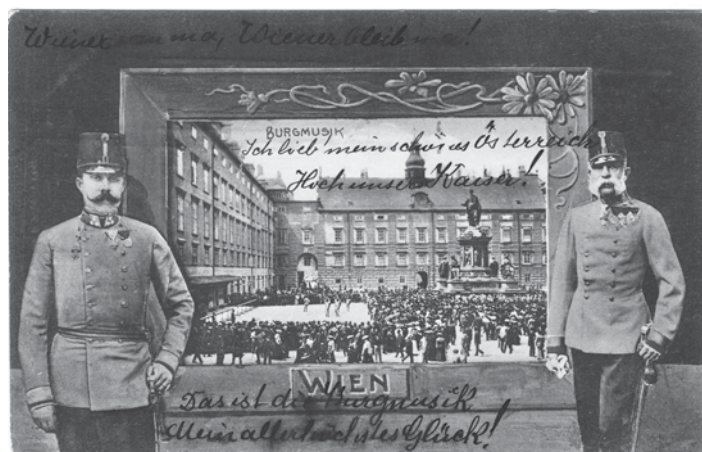 Wiener san ma, Wiener bleib ma!
BURGMUSIK
Ich lieb' mein schönes Österreich
Hoch unser Kaiser!
WIEN
Das ist die Burgmusik
Mein allerhöchstes Glück!